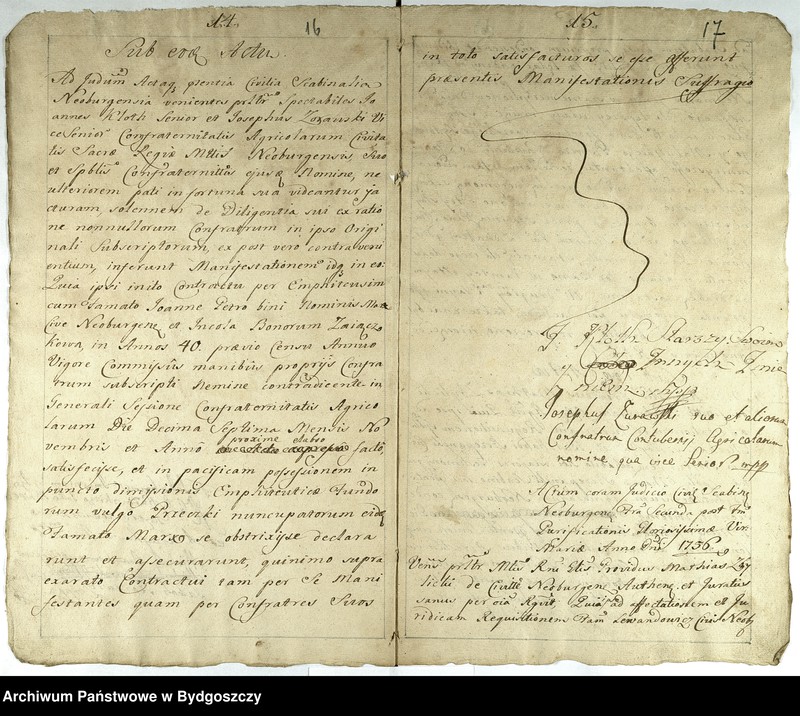 14.
16
Sub eod Actu
Ad Judicium Actaq prsentia Civilia Scabinalia
Neoburgensia venientes prltr Spectabiles Jo
annes Kloth Senior et Josephus Vi
ce Senior Confraternitatis Agricolarum Civita
tis Sacræ Regiæ Mttis Neoburgensis, Suo
et Spblis Confraternittis ejusq Nomine, ne
ulteriorem pati in fortuna sua videantur ja
cturam, solennem de Diligentia sui ex ratio
ne nonnullorum Confratrum in ipso Origi
nali Subscriptorum, ex post vero contraveni
entium, inferunt Manifestationem idq in eo:
Quia ipsi inito Contractu per Emphiteusim
cum Famato Joanne Petro bini Nominis
Cive Neoburgen et Incola Bonorum Zaiącz
kowa, in Annos 40. prævio Censu Annuo
Vigore Commissus manibus proprijs Confra
trum subscripti Nemine contradicente in
Generali Sessione Confraternitatis Agrico
larum Die Decima Septima Mensis No
vembris et Anno proxime elapso facto,
satisfecisse, et in pacificam possessionem in
puncto dimissionis Emphiteuticæ Fundo
rum vulgo Przeczki nuncupatorum
Famato se obstrixisse declara
runt et assecurarunt, quinimo supra
exarato Contractui tam per Se Mani
festantes quam per Confratres Suos
15.
17
in toto satisfacturos se esse offerunt
præsentis Manifestationis Suffragio
J: Kloth Starszy
y Innych
Josephus suo et aliorum
Confratrum Contubernij Agricolarum
nomine qua vice Senior mpp
Actum coram Judicio Scabin
Neoburgen Fria Secunda post Fm
Purificationis Gloriosissimæ Vir
Mariæ Anno Dni 1736.
Vens prltr Providus Mathias
de Civitte Neoburgen Authen et Juratus
sanus per oia Quia ipse ad affectationem et Ju
ridicam Requisitionem Fam Civis Neob
Archiwum Państwowe w Bydgoszczy